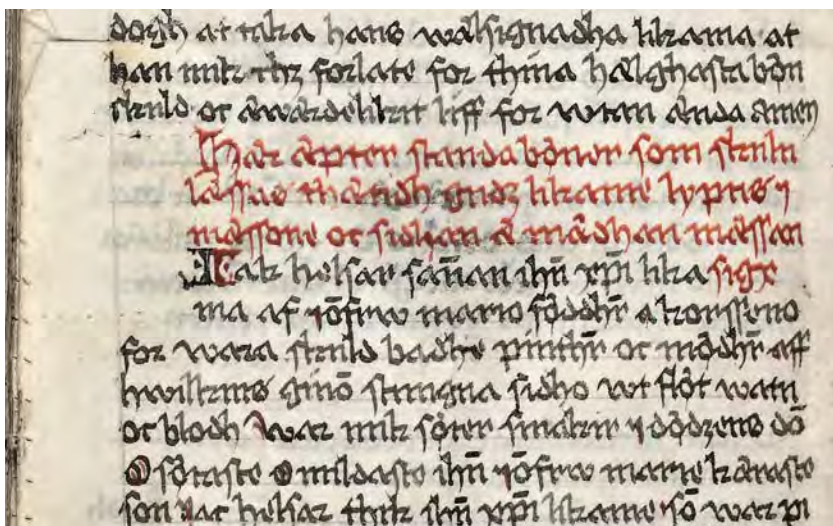 dogh at taka hans wälsignadha likama at
han mik thz forlate for thina hälghasta bön
skuld oc äwärdelikit liff for wtan ända Amen
Här äpter standa böner som skulu
läsas thändh gudz likame lyptis ȷ
mässone oc sidhan ä mädhan mässan
Iak helsar sañan ihū xp̄i lika sige
ma af ȷōfrw mario föddhr̄ a korsseno
for wara skuld badhe pinthr̄ oc mödhr̄ aff
hwilkins ginō stungna sidho wt flöt watn
oc blodh war mik söter smakir ȷ dödzens dō
O sötaste O mildaste ihū ȷōfrw marie käraste
son Jac helsar thik ihū xp̄i likame sō war pi